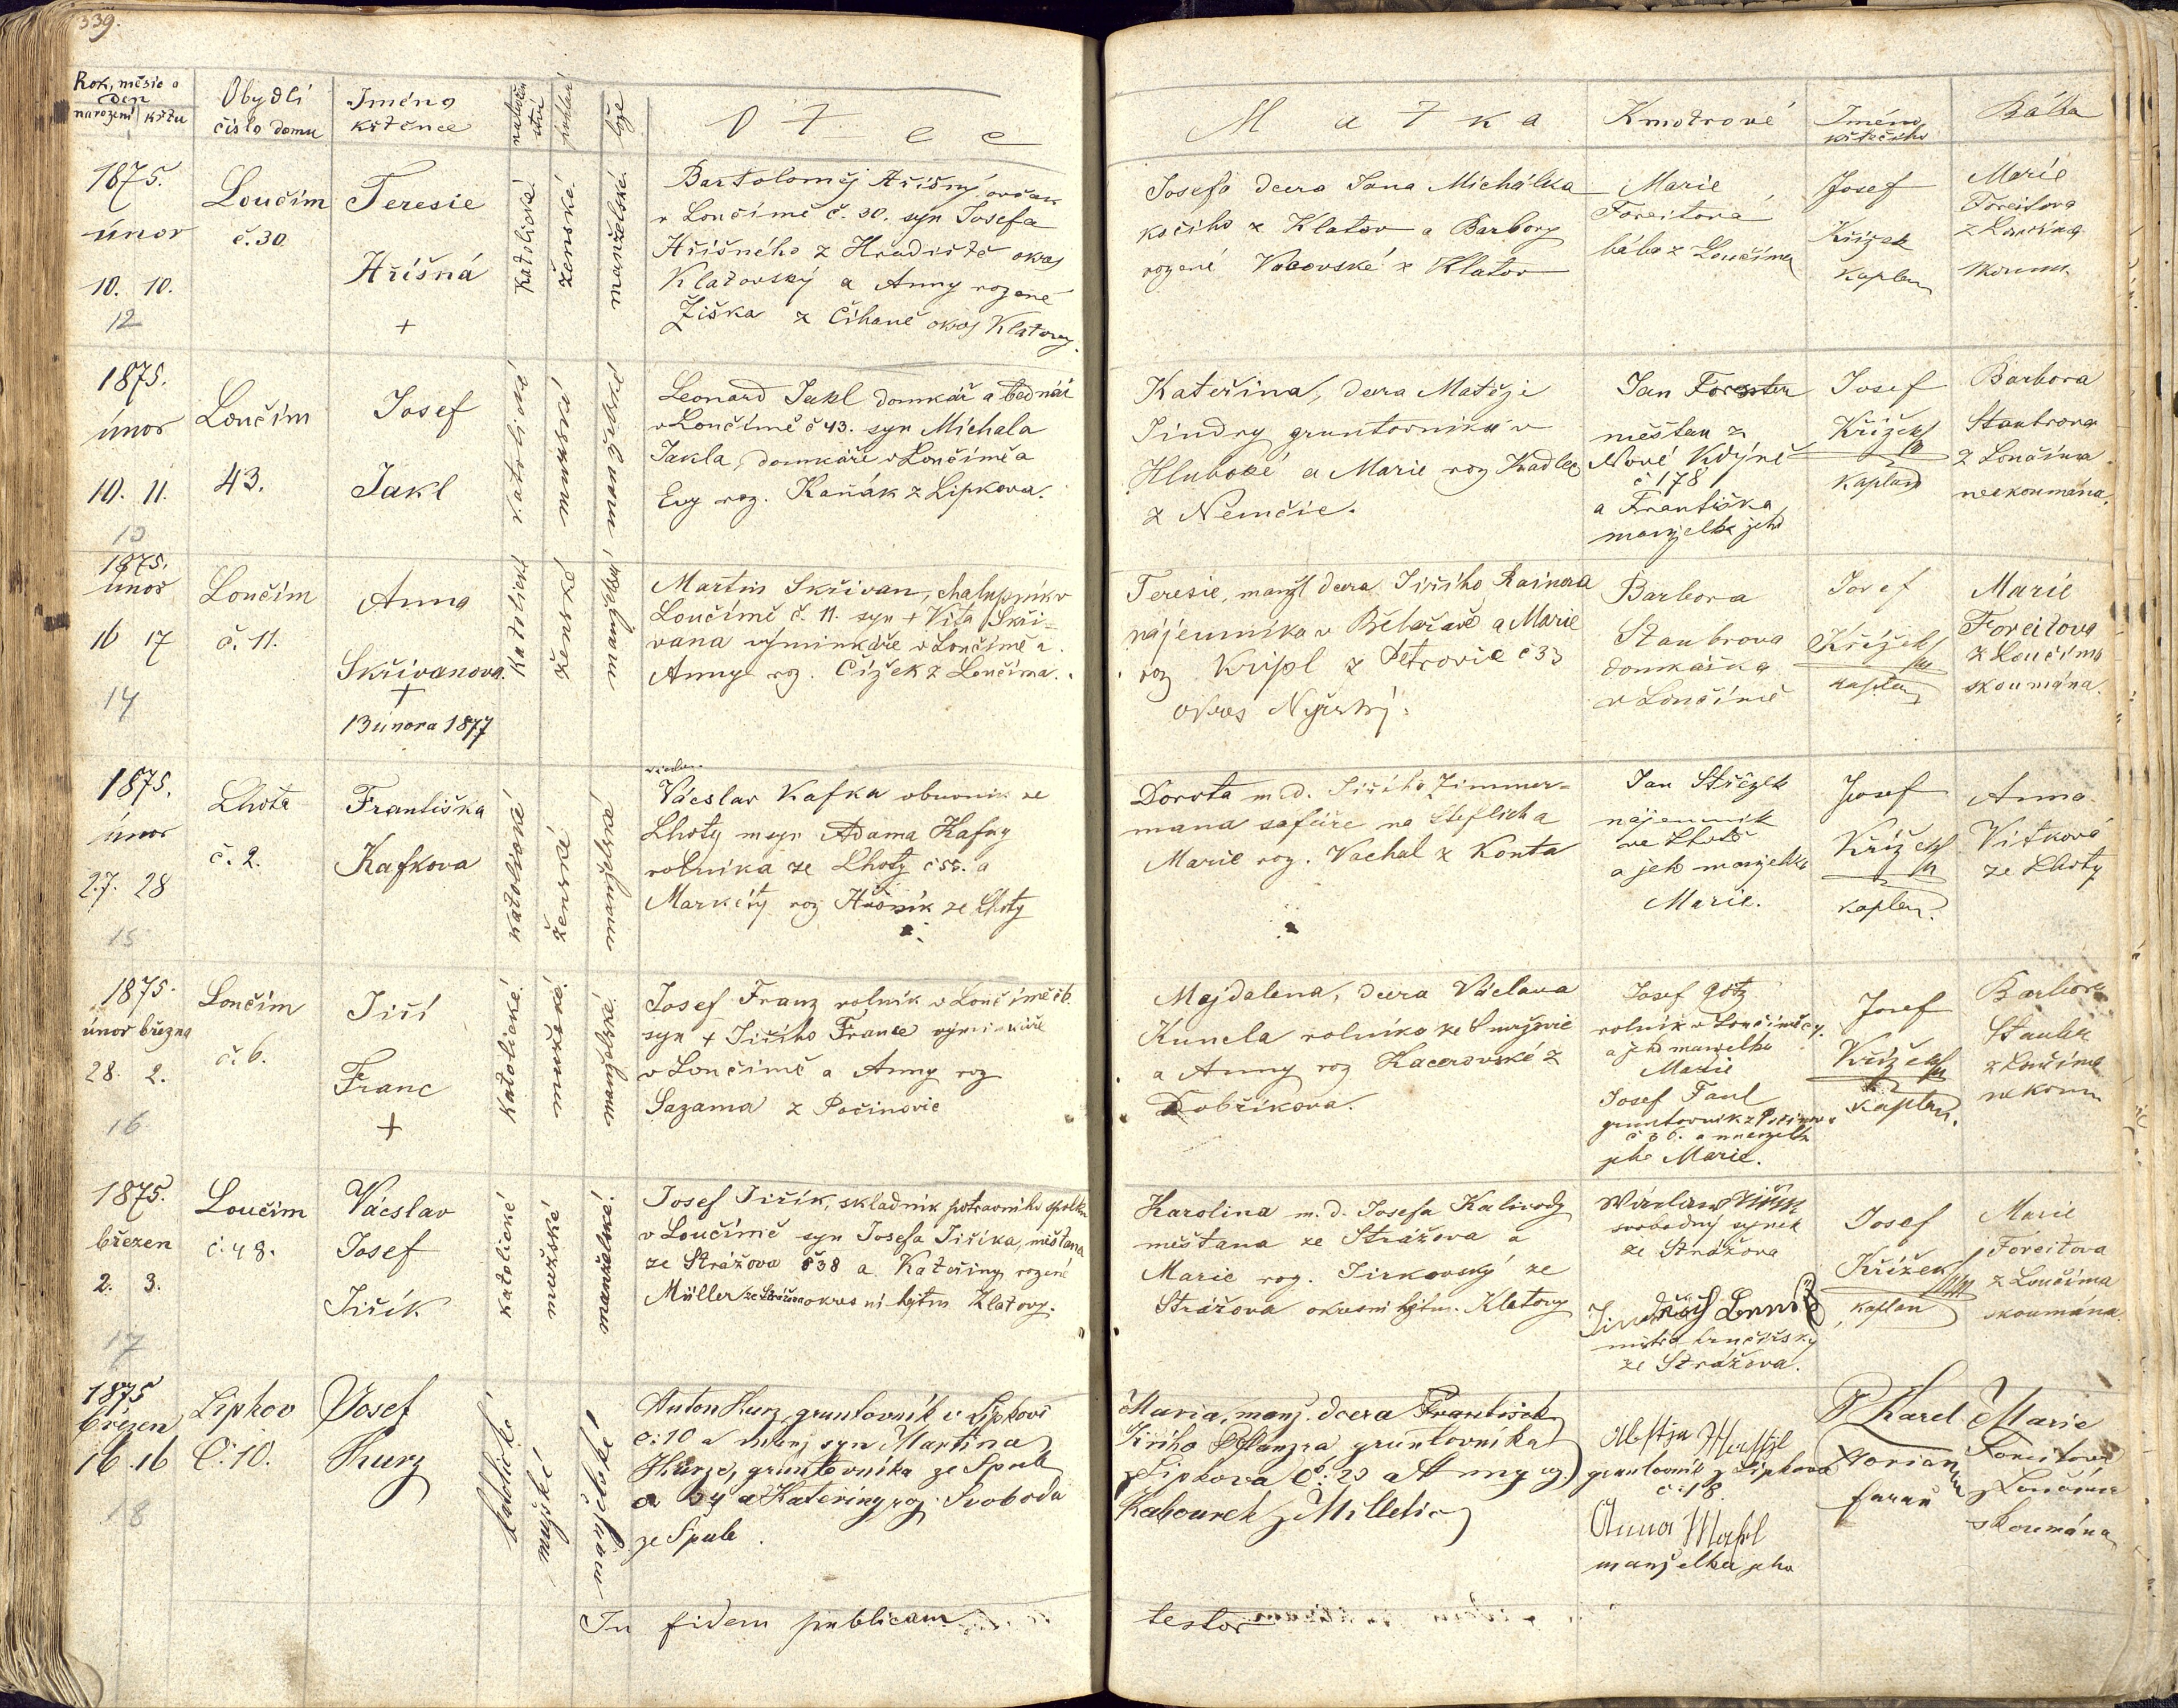 339.
Rok, měsíc a
den
narození křtu
Obydlí
číslo domu
Jméno
křtěnce
nábožen
ství
pohlaví
lože
Otec
Matka
Kmotrové
Jméno
křtícího
Bába
1875.
únor
10. 10.
12
Loučim
č. 30
Teresie
Hříšná
+
katolické
ženské
manželské
Bartoloměj Hříšný ovčák
v Loučimě č. 30. syn Josefa
Hříšného z Hradiště okes
Klatovský a Anny rozené
Žiška z Číhaně okes Klatovy.
Josefa dcera Jana Michálka
kočího z Klatov a Barbory
rozené Vacovské z Klatov
Marie
Foreitova
bába z Loučima
Josef
Křížek
kaplan
Marie
Foreitova
z Loučima
skoum.
1875.
únor
10. 11.
13
Loučim
43.
Josef
Jakl
katolické
mužské
manželské
Leonard Jakl domkář a bednář
v Loučimě č 43. syn Michala
Jakla, domkáře v Loučimě a
Evy roz. Kaňák z Lipkova.
Kateřina, dcera Matěje
Jindry gruntovníka v
Hluboké a Marie roz Kadlec
z Nemčic.
Jan Forster
měštan z
Nové Kdýně
č 178
a Františka
manželka jeho
Josef
Křížek
kaplan
Barbora
Staubrova
z Loučima
neskoumána.
1875.
únor
16 17
14
Loučim
č. 11.
Anna
Skřivanova.
+
13 února 1877
katolické
ženské
manželské
Martin Skřivan, chalupník v
Loučimě č. 11. syn + Víta Skři-
vana výminkáře v Loučimě a
Anny roz. Čížek z Loučima.
Teresie, manžl dcera Jiřího Rainera
nájemníka v Bělařově a Marie
roz Kripl z Petrovic č 33
okres Nýrský.
Barbora
Staubrova
domkářka
v Loučimě
Josef
Křížek
kaplan
Marie
Foreitova
z Loučima
skoumána.
1875.
únor
27. 28
15
Lhota
č. 2.
Františka
Kafkova
katolické
ženské
manželské
Václav Kafka obuvník ze
Lhoty m syn Adama Kafky
rolníka ze Lhoty č 55. a
Markéty roz Hřšník ze Lhoty
Dorota m. d. Jiřího Zimmer-
mana šafáře na Šteflich a
Marie roz. Vachal z Konta
Jan Střížek
nájemník
ve Lhotě
a jeho manželka
Marie.
Josef
Křížek
kaplan.
Anna
Vítková
ze Lhoty
1875.
únor března
28. 2.
16
Loučim
č. 6.
Jiří
Franc
+
katolické
mužské
manželské
Josef Franz rolník v Loučimě č 6.
syn + Jiřího France výminkáře
v Loučimě a Anny roz
Sazama z Pocinovic
Majdalena, dcera Václava
Kuncla rolníka ze Smržovic
a Anny roz Kacerovské z
Dobříkova.
Josef Götz
rolník v Loučimě č 7.
a jeho manželka
Marie
Josef Faul
gruntovník z Pocinov.
č 36. a manželka
jeho Marie.
Josef
Křížek
kaplan.
Barbora
Staubr
z Loučima
neskoum
1875.
březen
2. 3.
17
Loučim
č. 48.
Vácslav
Josef
Jiřík
katolické
mužské
manželské
Josef Jiřík, skladník potravního spolku
v Loučimě syn Josefa Jiříka, měštana
ze Strážova č38 a Kateřiny rozené
Müller ze Strážova okresní hejtm Klatovy.
Karolina m. d. Josefa Kalivody
měštana ze Strážova a
Marie roz. Jirkovský ze
Strážova okresní hejtm. Klatovy
Wáclaw Jiřík
svobodný synek
ze Strážova
Jindřich
mistr hrnčířský
ze Strážova.
Josef
Křížek
kaplan
Marie
Foreitova
z Loučima
skoumána.
1875
březen
16. 16
18
Lipkov
č: 10.
Josef
Kurz
katolické
mužské
manželské
Anton Kurz, gruntovník v Lipkově
č: 10 a manž syn Martina
Kurze, gruntovníka ze Spule
č 54 a Kateřiny roz. Svoboda
ze Spule.
Maria, manž. dcera František
Jiřího Pflanzra gruntovníka
z Lipkova č. 23 a Anny roz.
Kabourek z Milletic
gruntovník z Lipkova
č: 18.
Anna
manželka jeho
P. Karel
Florian
farář
Marie
Foreitova
z Loučima
skoumána
In fidem publicam
testor